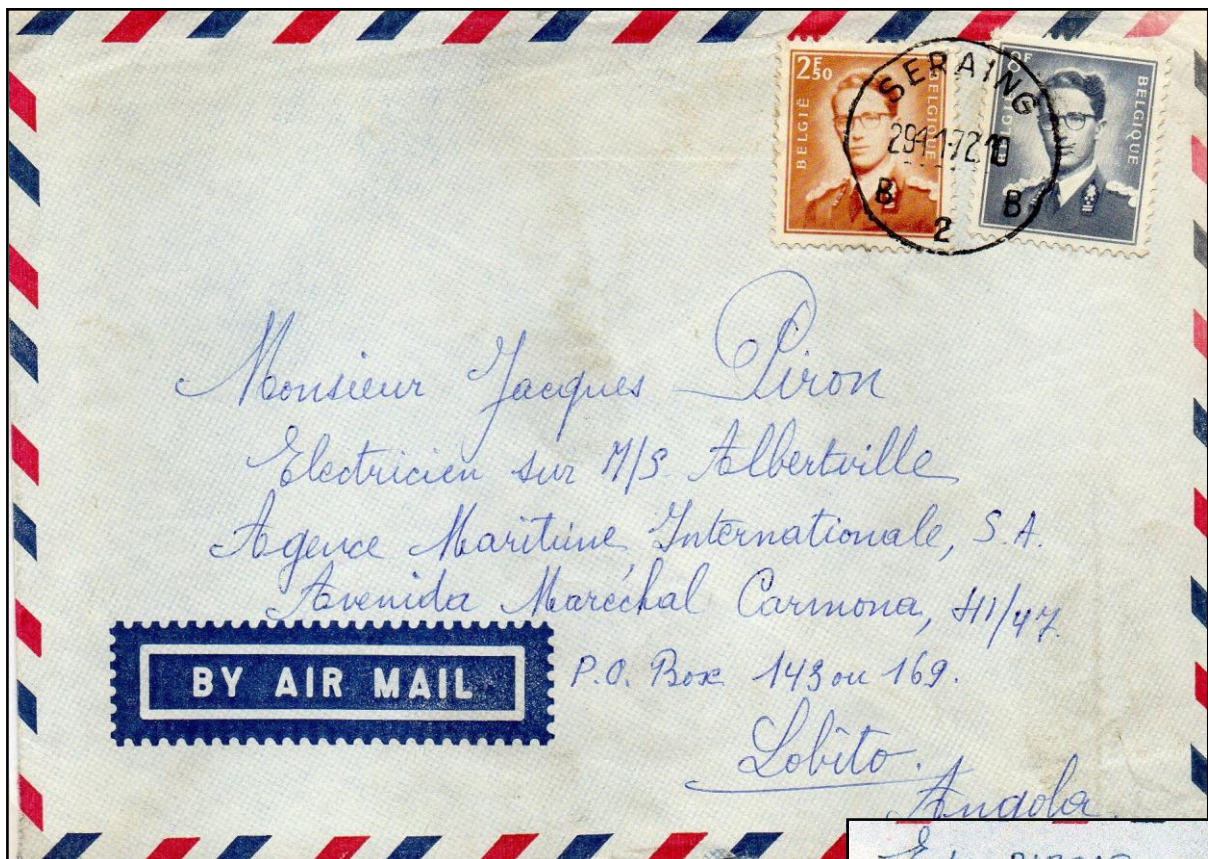 2F50
BELGIË
BELGIQUE
8F
BELGIË
BELGIQUE
SERAING
B
2
B
Monsieur Jacques Piron
Electricien sur M/S Albertville
Agence Maritime Internationale, S.A.
Avenida Maréchal Carmona,
P.O. Box 143 ou 169.
Lobito.
Angola.
BY AIR MAIL